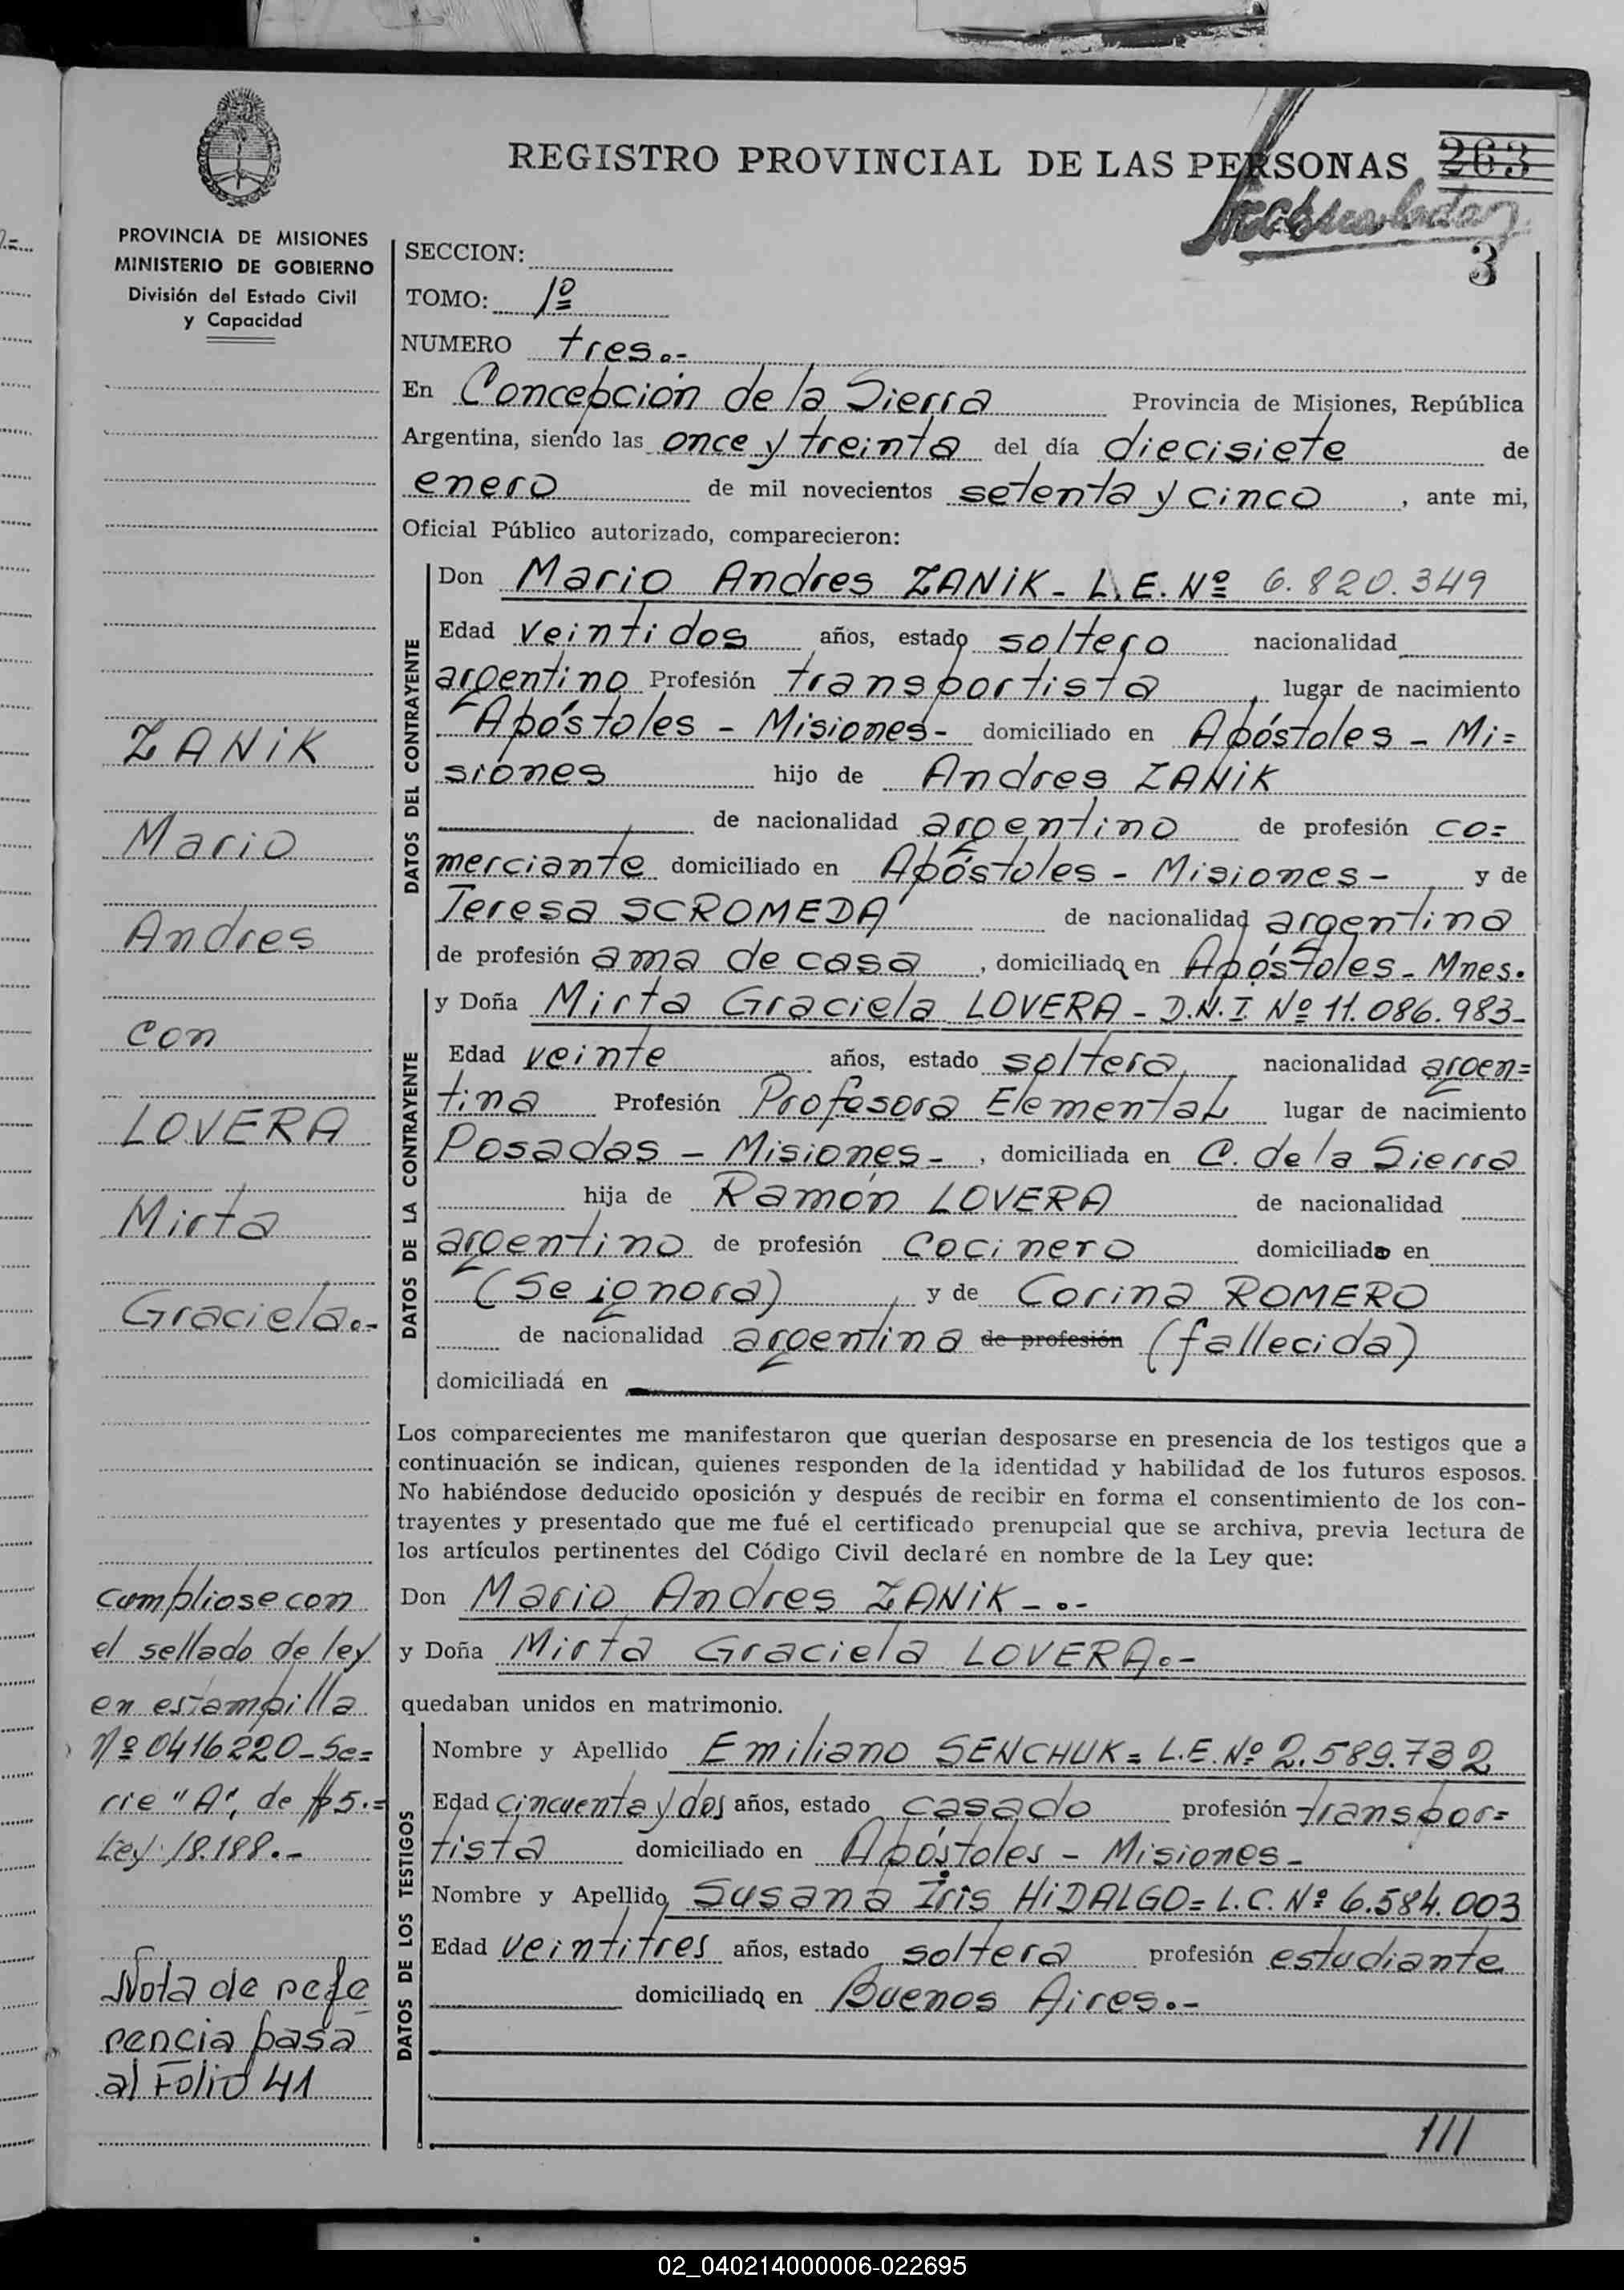 REGISTRO PROVINCIAL DE LAS PERSONAS 263
3
PROVINCIA DE MISIONES
MINISTERIO DE GOBIERNO
División del Estado Civil
y Capacidad
ZANIK
Mario
Andres
con
LOVERA
Mirta
Graciela.-
cumpliose con
el sellado de ley
en estampilla
Nº 0416220-Se=
rie "A", de $5.=
Ley 18.188.-
Nota de refe
rencia pasa
al Folio 41
SECCION:
TOMO: 1º
NUMERO tres.-
En Concepción de la Sierra Provincia de Misiones, República
Argentina, siendo las once y treinta del día diecisiete de
enero de mil novecientos setenta y cinco, ante mi,
Oficial Público autorizado, comparecieron:
DATOS DEL CONTRAYENTE
Don Mario Andres ZANIK - L.E. Nº 6.820.349
Edad veintidos años, estado soltero nacionalidad
argentino Profesión transportista, lugar de nacimiento
Apóstoles - Misiones - domiciliado en Apóstoles - Mi=
siones hijo de Andres ZANIK
de nacionalidad argentino de profesión co=
merciante domiciliado en Apóstoles - Misiones - y de
Teresa SCROMEDA de nacionalidad argentina
de profesión ama de casa, domiciliada en Apóstoles - Mnes.
DATOS DE LA CONTRAYENTE
y Doña Mirta Graciela LOVERA - D.N.I. Nº 11.086.983-
Edad veinte años, estado soltera, nacionalidad argen=
tina Profesión Profesora Elemental lugar de nacimiento
Posadas - Misiones -, domiciliada en C. de la Sierra
hija de Ramón LOVERA de nacionalidad
argentino de profesión cocinero domiciliado en
(Se ignora), y de Corina ROMERO
de nacionalidad argentina de profesión (fallecida)
domiciliada en
Los comparecientes me manifestaron que querian desposarse en presencia de los testigos que a
continuación se indican, quienes responden de la identidad y habilidad de los futuros esposos.
No habiéndose deducido oposición y después de recibir en forma el consentimiento de los con-
trayentes y presentado que me fué el certificado prenupcial que se archiva, previa lectura de
los artículos pertinentes del Código Civil declaré en nombre de la Ley que:
Don Mario Andres ZANIK -.-
y Doña Mirta Graciela LOVERA.-
quedaban unidos en matrimonio.
DATOS DE LOS TESTIGOS
Nombre y Apellido Emiliano SENCHUK = L.E. Nº 2.589.732
Edad cincuenta y dos años, estado casado profesión transpor=
tista domiciliado en Apóstoles - Misiones -
Nombre y Apellido Susana Iris HIDALGO = L.C. Nº 6.584.003
Edad veintitres años, estado soltera profesión estudiante
domiciliada en Buenos Aires.-
///
02_040214000006-022695